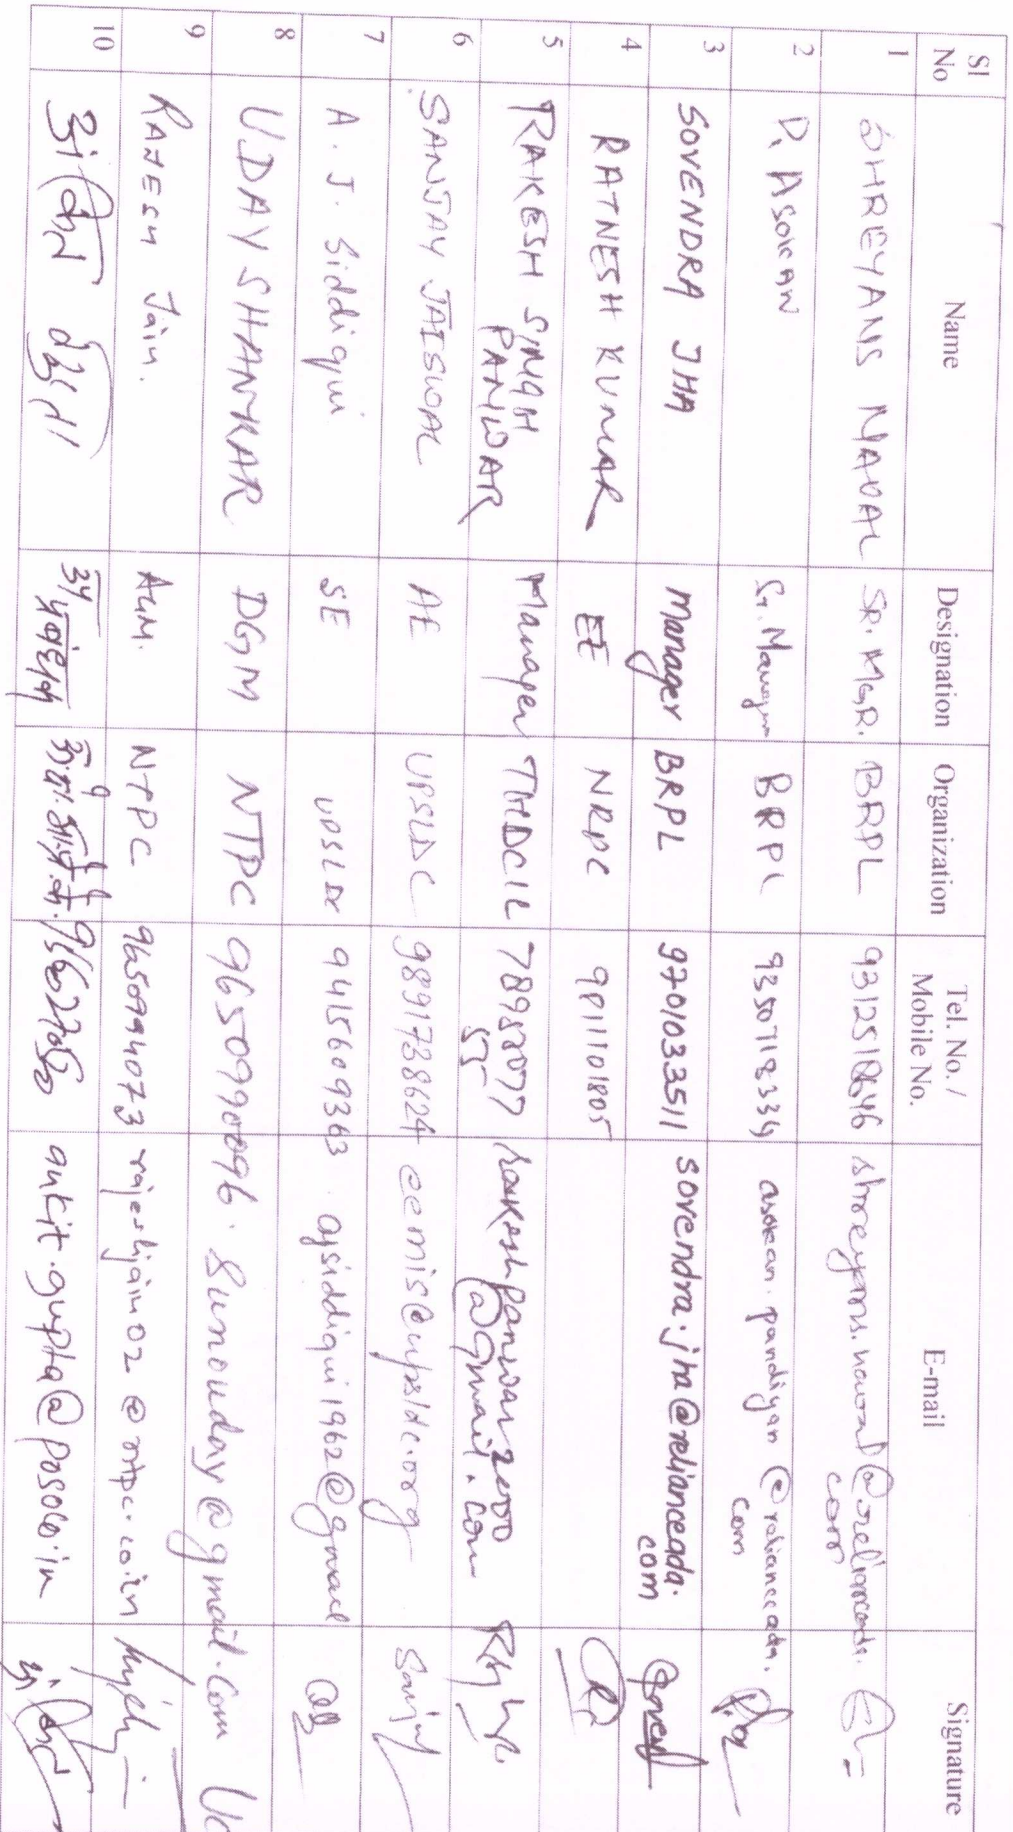 Sl No Name Designation Organization Tel. No./ Mobile No. E-mail Signature
1 SHREYANS NAVAL SR. MGR. BRPL 9312518646 @relianceada.com
2 P. ASOKAN Sr. Manager BRPL asokan.pandiyan@relianceada.com
3 SOVENDRA JHA Manager BRPL 9701033511 sovendra.jha@relianceada.com
4 RATNESH KUMAR EE NRPC 9811101805
5 RAKESH SINGH PANWAR Manager THDCIL rakeshpanwar2000@gmail.com
6 SANJAY JAISWAL AE UPSLDC 9891738624 eemis@upsldc.org
7 A. J. Siddiqui SE UPSLDC 9415609363 ajsiddiqui1962@gmail
8 UDAY SHANKAR DGM NTPC 9650990096 Sunouday@gmail.com
9 RAJESH Jain. AGM. NTPC 9650994073 rajeshjain02@ntpc.co.in
10 अंकित गुप्ता उप प्रबंधक ankit.gupta@posoco.in